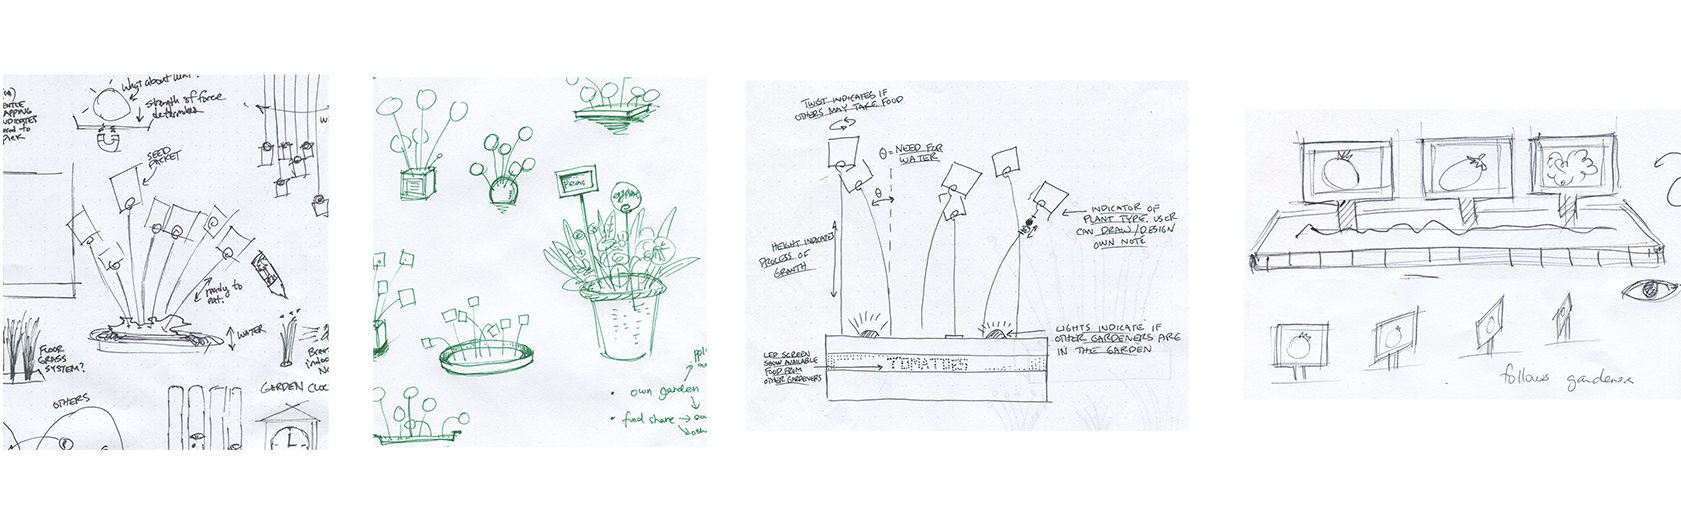 WHAT ABOUT
STRENGTH OF FORCE
DETERMINED
INDICATES
PICK
SEED
PACKET
READY TO
EAT.
WATER
FLOOR
GRASS
SYSTEM?
OTHERS
GARDEN CLOC
PEAS
own garden
food share
TWIST INDICATES IF
OTHERS MAY TAKE FOOD
θ = NEED FOR
WATER
θ
HEIGHT INDICATES
PROCESS OF
GROWTH
INDICATOR OF
PLANT TYPE. USER
CAN DRAW/DESIGN
OWN NOTE
LIGHTS INDICATE IF
OTHER GARDENERS ARE
IN THE GARDEN
LED SCREEN
SHOW AVAILABLE
FOOD FROM
OTHER GARDENERS
TOMATOES
follows gardener